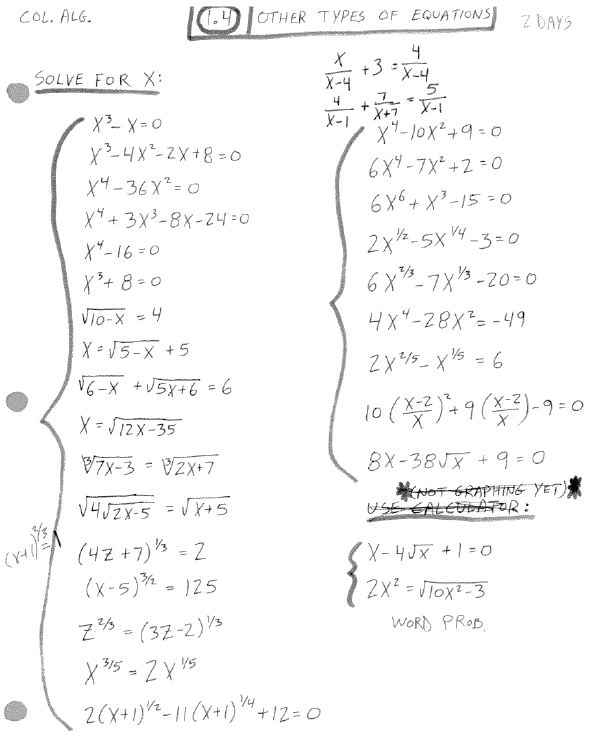 COL. ALG.
1.4 OTHER TYPES OF EQUATIONS
2 DAYS
SOLVE FOR X:
X³-X=0
X³-4X²-2X+8=0
X⁴-36X²=0
X⁴+3X³-8X-24=0
X⁴-16=0
X³+8=0
√(10-X) = 4
X=√(5-X) +5
√(6-X) +√(5X+6) = 6
X=√(12X-35)
∛(7X-3) = ∛(2X+7)
√(4√(2X-5)) = √(X+5)
(X+1)^(2/3) =
(4Z+7)^(1/3) = 2
(X-5)^(3/2) = 125
Z^(2/3) = (3Z-2)^(1/3)
X^(3/5) = 2X^(1/5)
2(X+1)^(1/2)-11(X+1)^(1/4)+12=0
X/(X-4) +3 = 4/(X-4)
4/(X-1) + 7/(X+7) = 5/(X-1)
X⁴-10X²+9=0
6X⁴-7X²+2=0
6X⁶+X³-15=0
2X^(1/2)-5X^(1/4)-3=0
6X^(2/3)-7X^(1/3)-20=0
4X⁴-28X²=-49
2X^(2/5)-X^(1/5) = 6
10((X-2)/X)²+9((X-2)/X)-9=0
8X-38√X +9=0
*(NOT GRAPHING YET)*
USE CALCULATOR:
X-4√X +1=0
2X²=√(10X²-3)
WORD PROB.